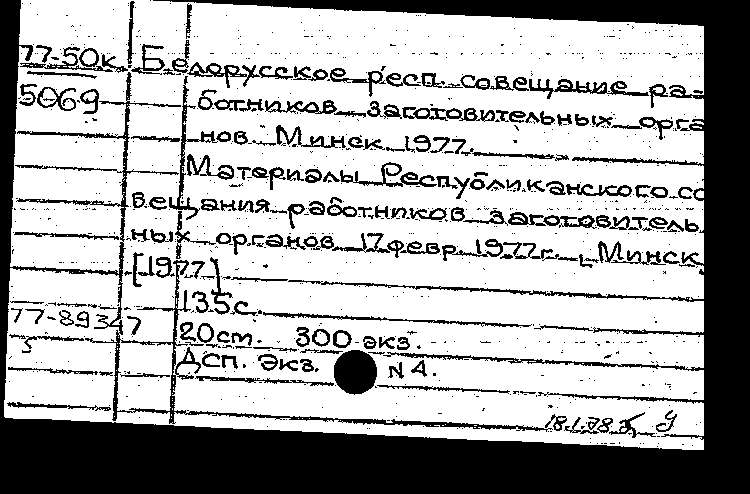 77-50к Белорусское респ. совещание ра-
5069 ботников заготовительных орга
нов. Минск 1977.
Материалы Республиканского со
вещания работников заготовитель
ных органов 17 февр. 1977г., Минск
[1977]
135с.
77-89347 20см. 300 экз.
5 Дсп. Экз. N 4.
18.1.78